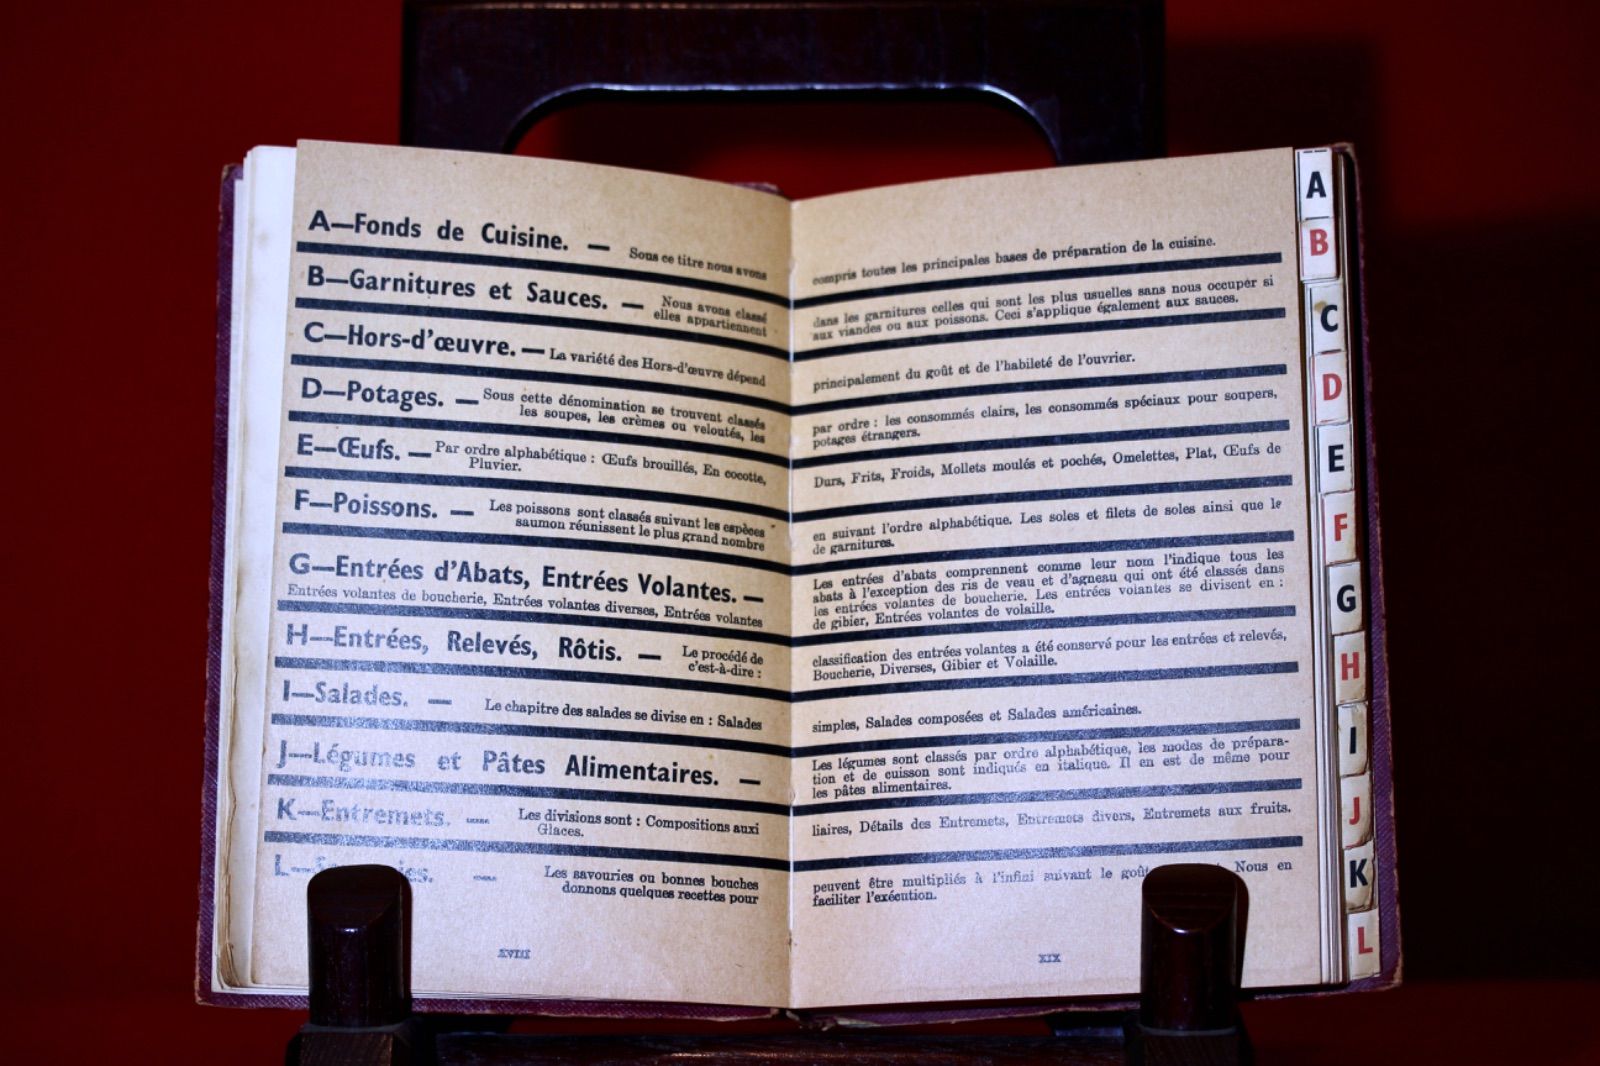 A—Fonds de Cuisine. — Sous ce titre nous avons
B—Garnitures et Sauces. — Nous avons classé
elles appartiennent
C—Hors-d'œuvre. — La variété des Hors-d'œuvre dépend
D—Potages. — Sous cette dénomination se trouvent classés
les soupes, les crèmes ou veloutés, les
E—Œufs. — Par ordre alphabétique : Œufs brouillés, En cocotte,
Pluvier.
F—Poissons. — Les poissons sont classés suivant les espèces
saumon réunissent le plus grand nombre
G—Entrées d'Abats, Entrées Volantes. —
Entrées volantes de boucherie, Entrées volantes diverses, Entrées volantes
H—Entrées, Relevés, Rôtis. — Le procédé de
c'est-à-dire :
I—Salades. — Le chapitre des salades se divise en : Salades
J—Légumes et Pâtes Alimentaires. —
K—Entremets. — Les divisions sont : Compositions auxi
Glaces.
L— — Les savouries ou bonnes bouches
donnons quelques recettes pour
XVIII
compris toutes les principales bases de préparation de la cuisine.
dans les garnitures celles qui sont les plus usuelles sans nous occuper si
aux viandes ou aux poissons. Ceci s'applique également aux sauces.
principalement du goût et de l'habileté de l'ouvrier.
par ordre : les consommés clairs, les consommés spéciaux pour soupers,
potages étrangers.
Durs, Frits, Froids, Mollets moulés et pochés, Omelettes, Plat, Œufs de
en suivant l'ordre alphabétique. Les soles et filets de soles ainsi que le
de garnitures.
Les entrées d'abats comprennent comme leur nom l'indique tous les
abats à l'exception des ris de veau et d'agneau qui ont été classés dans
les entrées volantes de boucherie. Les entrées volantes se divisent en :
de gibier, Entrées volantes de volaille.
classification des entrées volantes a été conservé pour les entrées et relevés,
Boucherie, Diverses, Gibier et Volaille.
simples, Salades composées et Salades américaines.
Les légumes sont classés par ordre alphabétique, les modes de prépara-
tion et de cuisson sont indiqués en italique. Il en est de même pour
les pâtes alimentaires.
liaires, Détails des Entremets, Entremets divers, Entremets aux fruits.
peuvent être multipliés à l'infini suivant le goût Nous en
faciliter l'exécution.
XIX
A
B
C
D
E
F
G
H
I
J
K
L